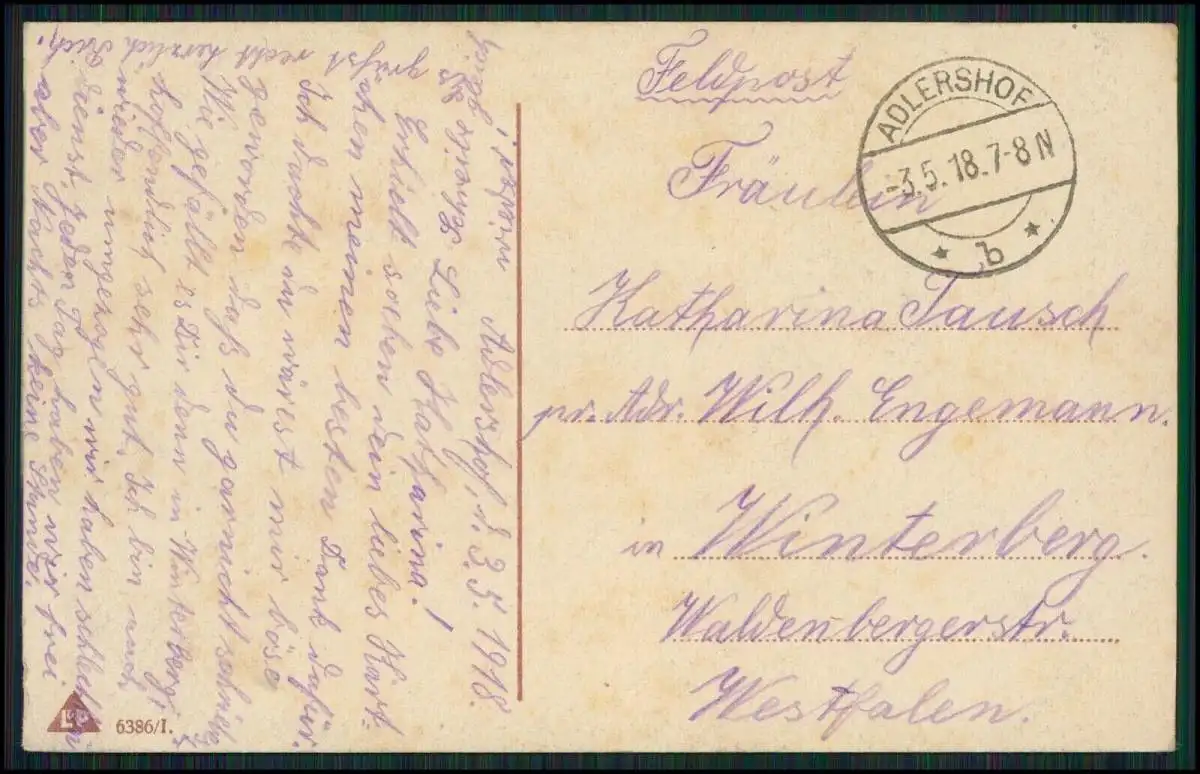 Feldpost
ADLERSHOF
-3.5.18.7-8N
* b *
Fräulein
Katharina Tausch
pr. Adr. Wilh. Engemann.
in Winterberg.
Waldenbergerstr.
Westfalen.
Adlershof, d. 3.5.1918.
Liebe Katharina!
Erhielt soeben dein liebes Kärt-
chen meinen besten Dank dafür.
Ich dachte du wärest mir böse
geworden daß du garnicht schriebs
Wie gefällt es Dir denn in Winterberg,
hoffentlich sehr gut, Ich bin auch
wieder umgezogen wir haben schlech
dienst, jeden Tag haben wir frei
aber Nachts keine Stunde.
grüßt recht herzlich Dich
LP
6386/I.